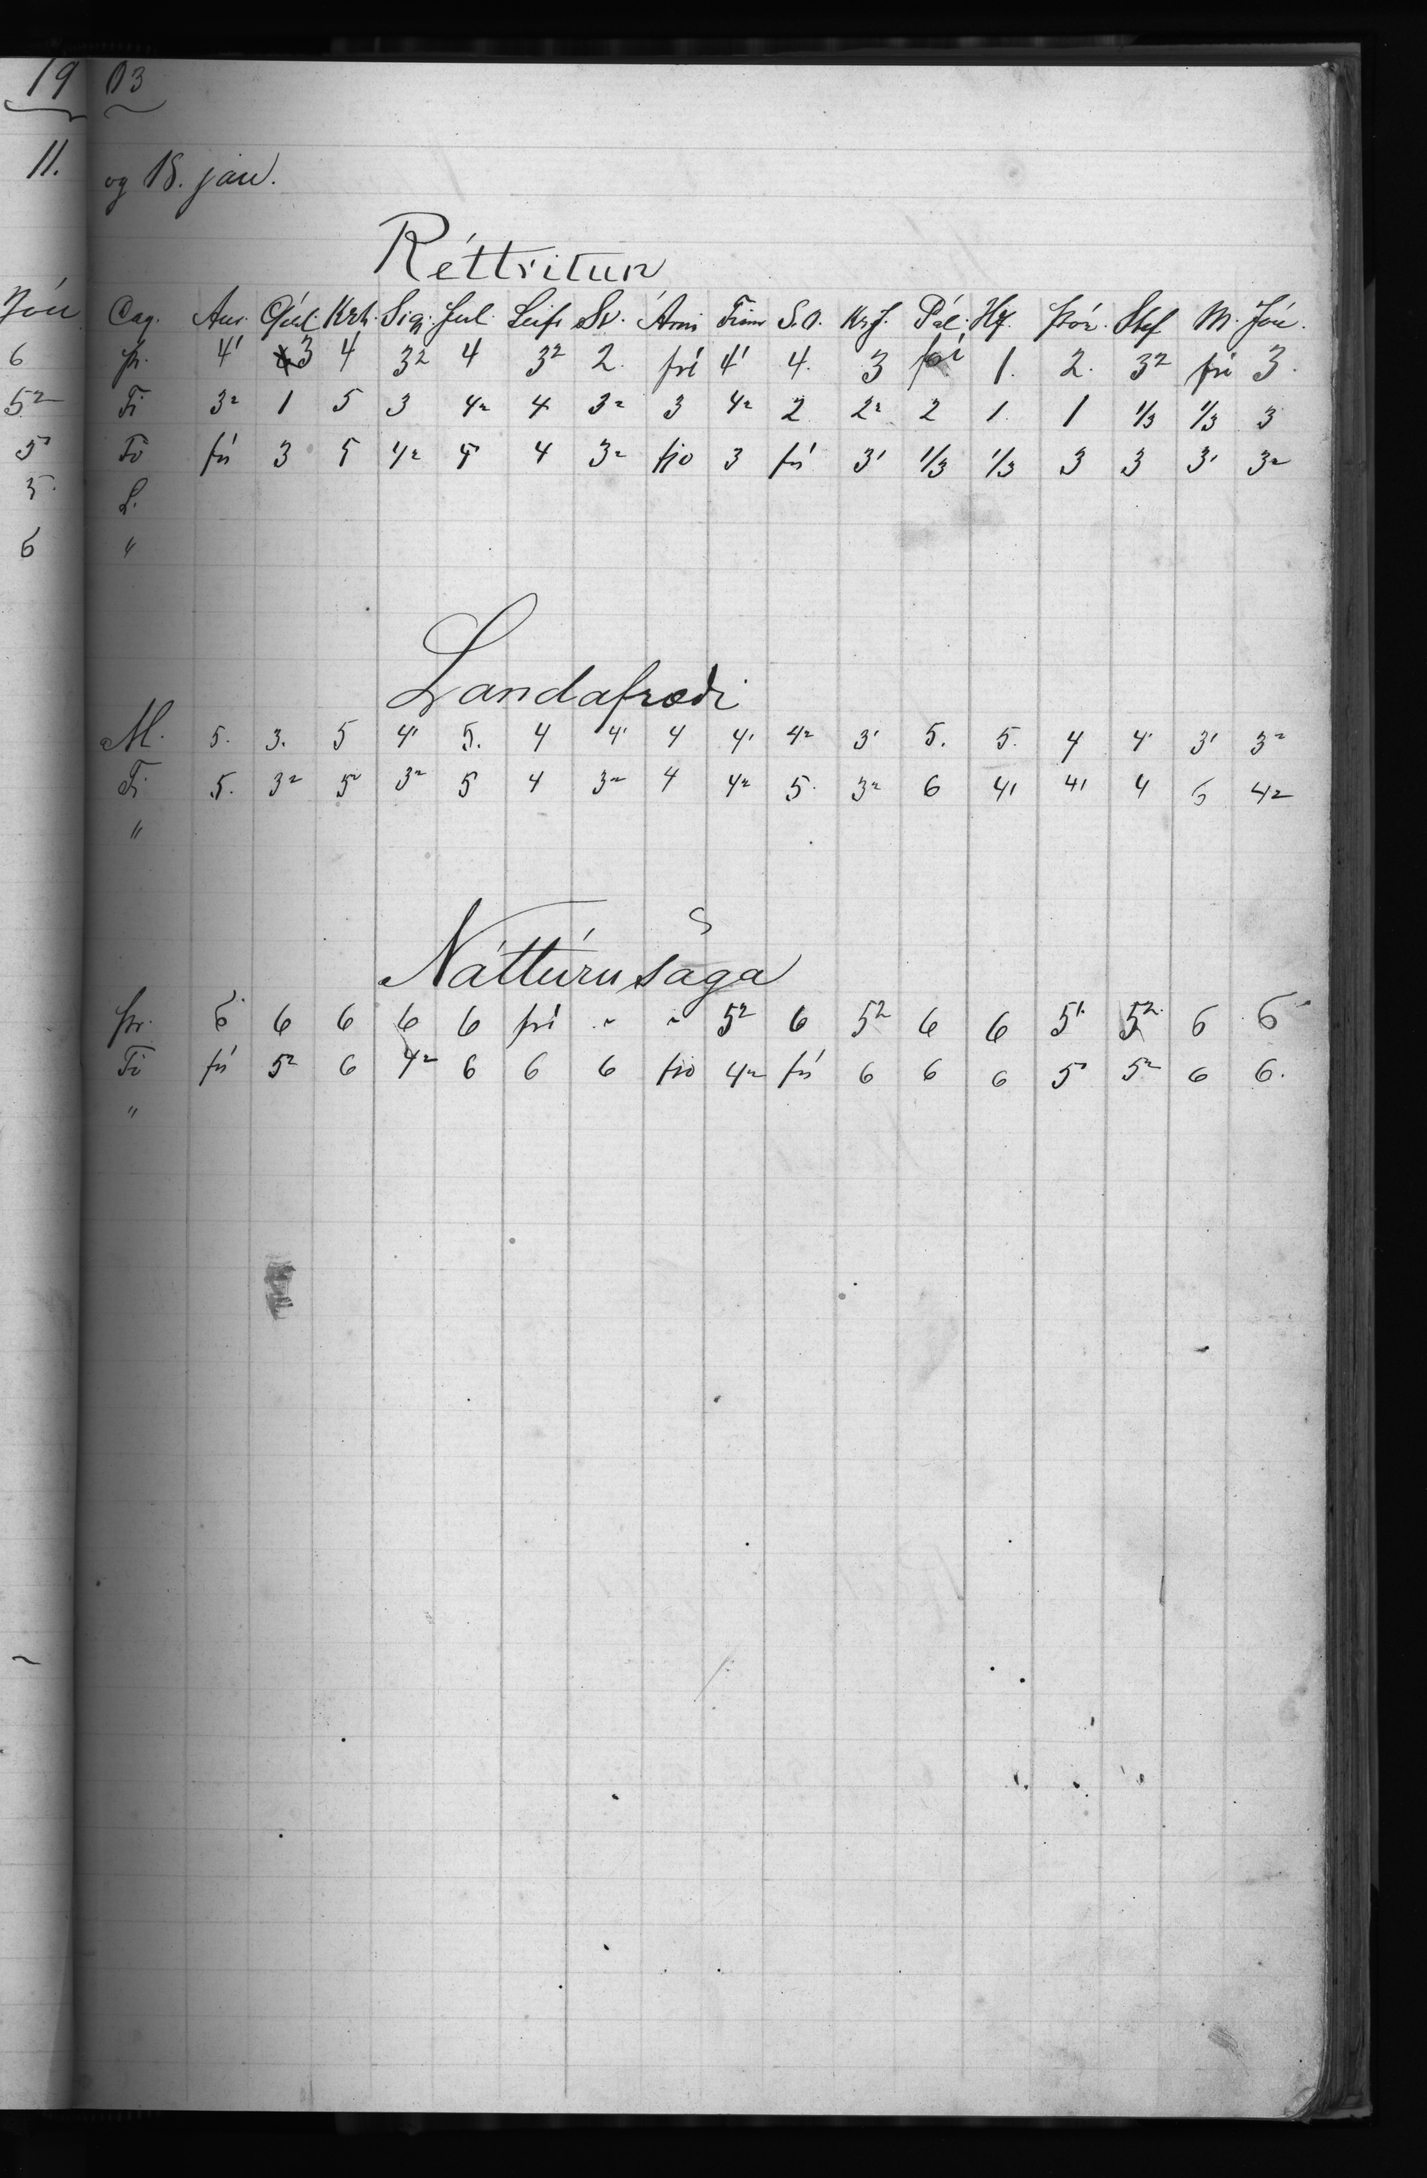 19 03
11. og 18. jan.
Réttritun
Jón Dag. Ans. Guðl. Krh. Sig. Jul. Leifr Sv. Árni Finnr S.O. Kr.J. Pál. Hf. Þór. Stef M. Jón.
6 Þr. 4' 3 4 3² 4 3² 2. frí 4' 4. 3 frí 1. 2. 3² frí 3.
5² Fi 3² 1 5 3 4² 4 3² 3 4² 2 2² 2 1. 1 1/3 1/3 3
5' Fö 3 5 4² 5 4 3² 3 3' 1/3 1/3 3 3 3' 3²
5. L.
6 "
Landafræði
M. 5. 3. 5 4' 5. 4 4' 4 4' 4² 3' 5. 5. 4 4' 3' 3²
Fi 5. 3² 5² 3² 5 4 3² 4 4² 5. 3² 6 4' 4' 4 6 4²
"
Náttúrusaga
Þr. 6 6 6 6 6 frí " " 5² 6 5² 6 6 5' 5² 6 6
Fö 5² 6 4² 6 6 6 4² 6 6 6 5' 5² 6 6.
"